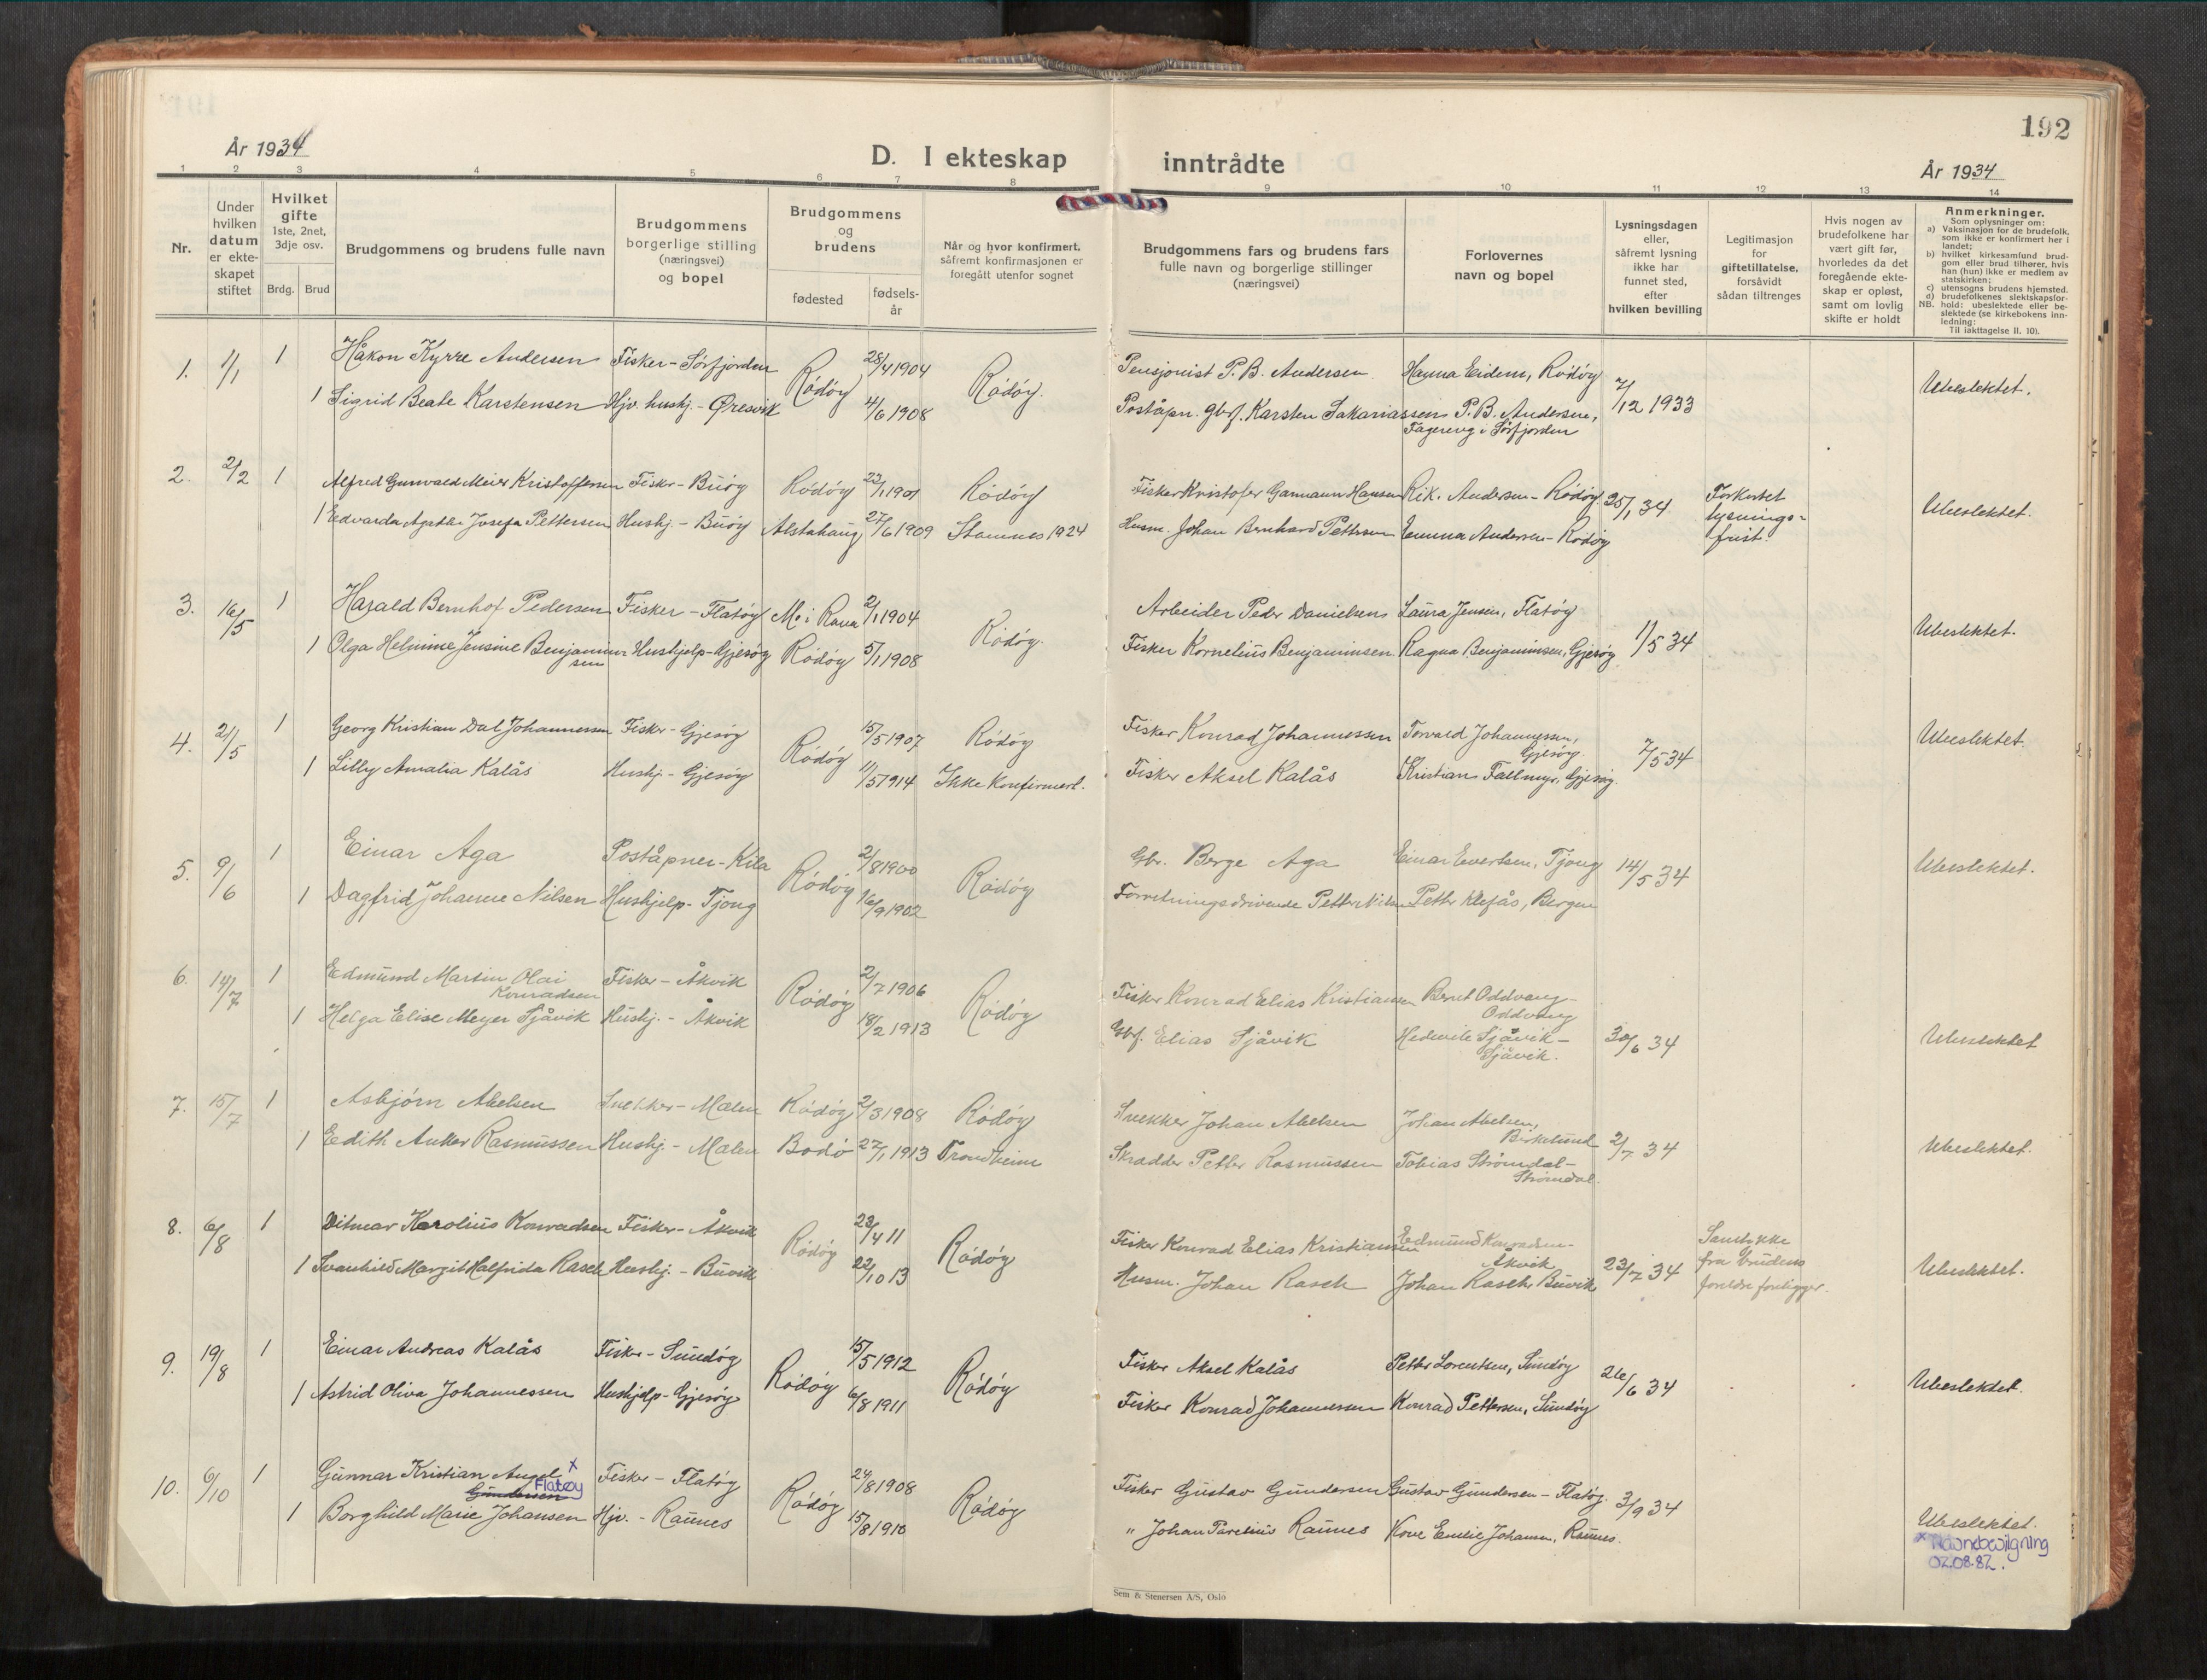 192
År 1934
D. I ekteskap inntrådte
År 1934
1 2 3 4 5 6 7 8 9 10 11 12 13 14
Nr.
Under hvilken datum er ekteskapet stiftet
Hvilket gifte 1ste, 2net, 3dje osv.
Brdg. Brud
Brudgommens og brudens fulle navn
Brudgommens borgerlige stilling (næringsvei) og bopel
Brudgommens og brudens
fødested
fødselsår
Når og hvor konfirmert, såfremt konfirmasjonen er foregått utenfor sognet
Brudgommens fars og brudens fars fulle navn og borgerlige stillinger (næringsvei)
Forlovernes navn og bopel
Lysningsdagen eller, såfremt lysning ikke har funnet sted, efter hvilken bevilling
Legitimasjon for giftetillatelse, forsåvidt sådan tiltrenges
Hvis nogen av brudefolkene har vært gift før, hvorledes da det foregående ekteskap er opløst, samt om lovlig skifte er holdt
Anmerkninger.
Som oplysninger om:
a) Vaksinasjon for de brudefolk, som ikke er konfirmert her i landet;
b) hvilket kirkesamfund brudgom eller brud tilhører, hvis han (hun) ikke er medlem av statskirken;
c) utensogns brudens hjemsted.
d) brudefolkenes slektskapsforhold: ubeslektede eller beslektede (se kirkebokens innledning:
NB.
Til iakttagelse II. 10).
1. 1/1 1 Håkon Kyrre Andersen Fisker - Sørfjorden Rödöy 28/4 1904 Rödöy. Pensjonist P. B. Andersen Hanna Eidem, Rödöy 7/12 1933 Ubeslektet.
1 Sigrid Beate Karstensen Hjv. hushj. - Øresvik 4/6 1908 Poståpn. gbrf. Karsten Sakariassen P. B. Andersen,
Fagereng i Sørfjorden
2. 2/2 1 Alfred Gunvald Meier Kristoffersen Fisker - Buöy Rödöy 23/1 1901 Rödöy Fisker Kristofer Garmann Hansen Rik. Andersen - Rödöy 25/1 34 Forkortet lysnings- frist. Ubeslektet.
1 Edvarda Agathe Josefa Pettersen Hushj. - Buöy Alstahaug 27/6 1909 Stamnes 1924 Husm. Johan Bernhard Pettersen Emma Andersen - Rödöy
3. 16/5 1 Harald Bernhof Pedersen Fisker - Flatöy Mo i Rana 2/1 1904 Rödöy. Arbeider Peder Danielsen Laura Jensen, Flatöy 1/5 34 Ubeslektet.
1 Olga Helmine Jensine Benjamin-
sen Hushjelp - Gjesöy Rödöy 5/1 1908 Fisker Kornelius Benjaminsen Ragna Benjaminsen, Gjesöy
4. 21/5 1 Georg Kristian Dal Johannessen Fisker - Gjesöy Rödöy 15/5 1907 Rödöy Fisker Konrad Johannessen Torvald Johannessen,
Gjesöy. 7/5 34 Ubeslektet.
1 Lilly Amalia Kalås Hushj. - Gjesöy 11/5 1914 Ikke konfirmert. Fisker Aksel Kalås Kristian Fallmyr, Gjesöy.
5. 9/6 1 Einar Aga Poståpner - Kila Rödöy 2/8 1900 Rödöy Gbr. Berge Aga Einar Evertsen, Tjong 14/5 34 Ubeslektet.
1 Dagfrid Johanne Nilsen Hushjelp - Tjong 16/9 1902 Forretningsdrivende Petter Nilsen Petter Klefås, Bergen
6. 14/7 1 Edmund Martin Olai
Konradsen Fisker - Åkvik Rödöy 2/7 1906 Rödöy Fisker Konrad Elias Kristiansen Bernt Oddvang -
Oddvang
1 Helga Elise Meyer Sjåvik Hushj. - Åkvik 18/2 1913 Gbf. Elias Sjåvik Hedevik Sjåvik -
Sjåvik. 30/6 34 Ubeslektet
7. 15/7 1 Asbjörn Abelsen Snekker - Melen Rödöy 2/3 1908 Rödöy Snekker Johan Abelsen Johan Abelsen,
Birkelund 2/7 34 Ubeslektet.
1 Edith Anker Rasmussen Hushj. - Melen Bodö 27/1 1913 Trondheim Skradder Petter Rasmussen Tobias Strömdal -
Strömdal.
8. 6/8 1 Ditmar Karolius Konradsen Fisker - Åkvik Rödöy 23/4 11 Rödöy Fisker Konrad Elias Kristiansen Edmund Konradsen -
Åkvik 23/7 34 Samtykke fra brudens foreldre foreligger. Ubeslektet.
1 Svanhild Margit Halfrida Rasch Hushj. - Buvik 22/10 13 Husm. Johan Rasch Johan Rasch, Buvik
9. 19/8 1 Einar Andreas Kalås Fisker - Sundöy Rödöy 15/5 1912 Rödöy Fisker Aksel Kalås Petter Lorentsen, Sundöy 26/6 34 Ubeslektet.
1 Astrid Oliva Johannessen Hushjelp - Gjesöy 6/8 1911 Fisker Konrad Johannessen Konrad Pettersen, Sundöy
10. 6/10 1 Gunnar Kristian Angel x
Gundersen Flatøy Fisker - Flatöy Rödöy 24/8 1908 Rödöy Fisker Gustav Gundersen Gustav Gundersen - Flatöy. 3/9 34
1 Borghild Marie Johansen Hjv. - Raunes 15/8 1910 " Johan Parelius Raunes Kone Emilie Johansen, Raunes. Ubeslektet.
x Navnebevilgning
02.08.82.
Sem & Stenersen A/S, Oslo